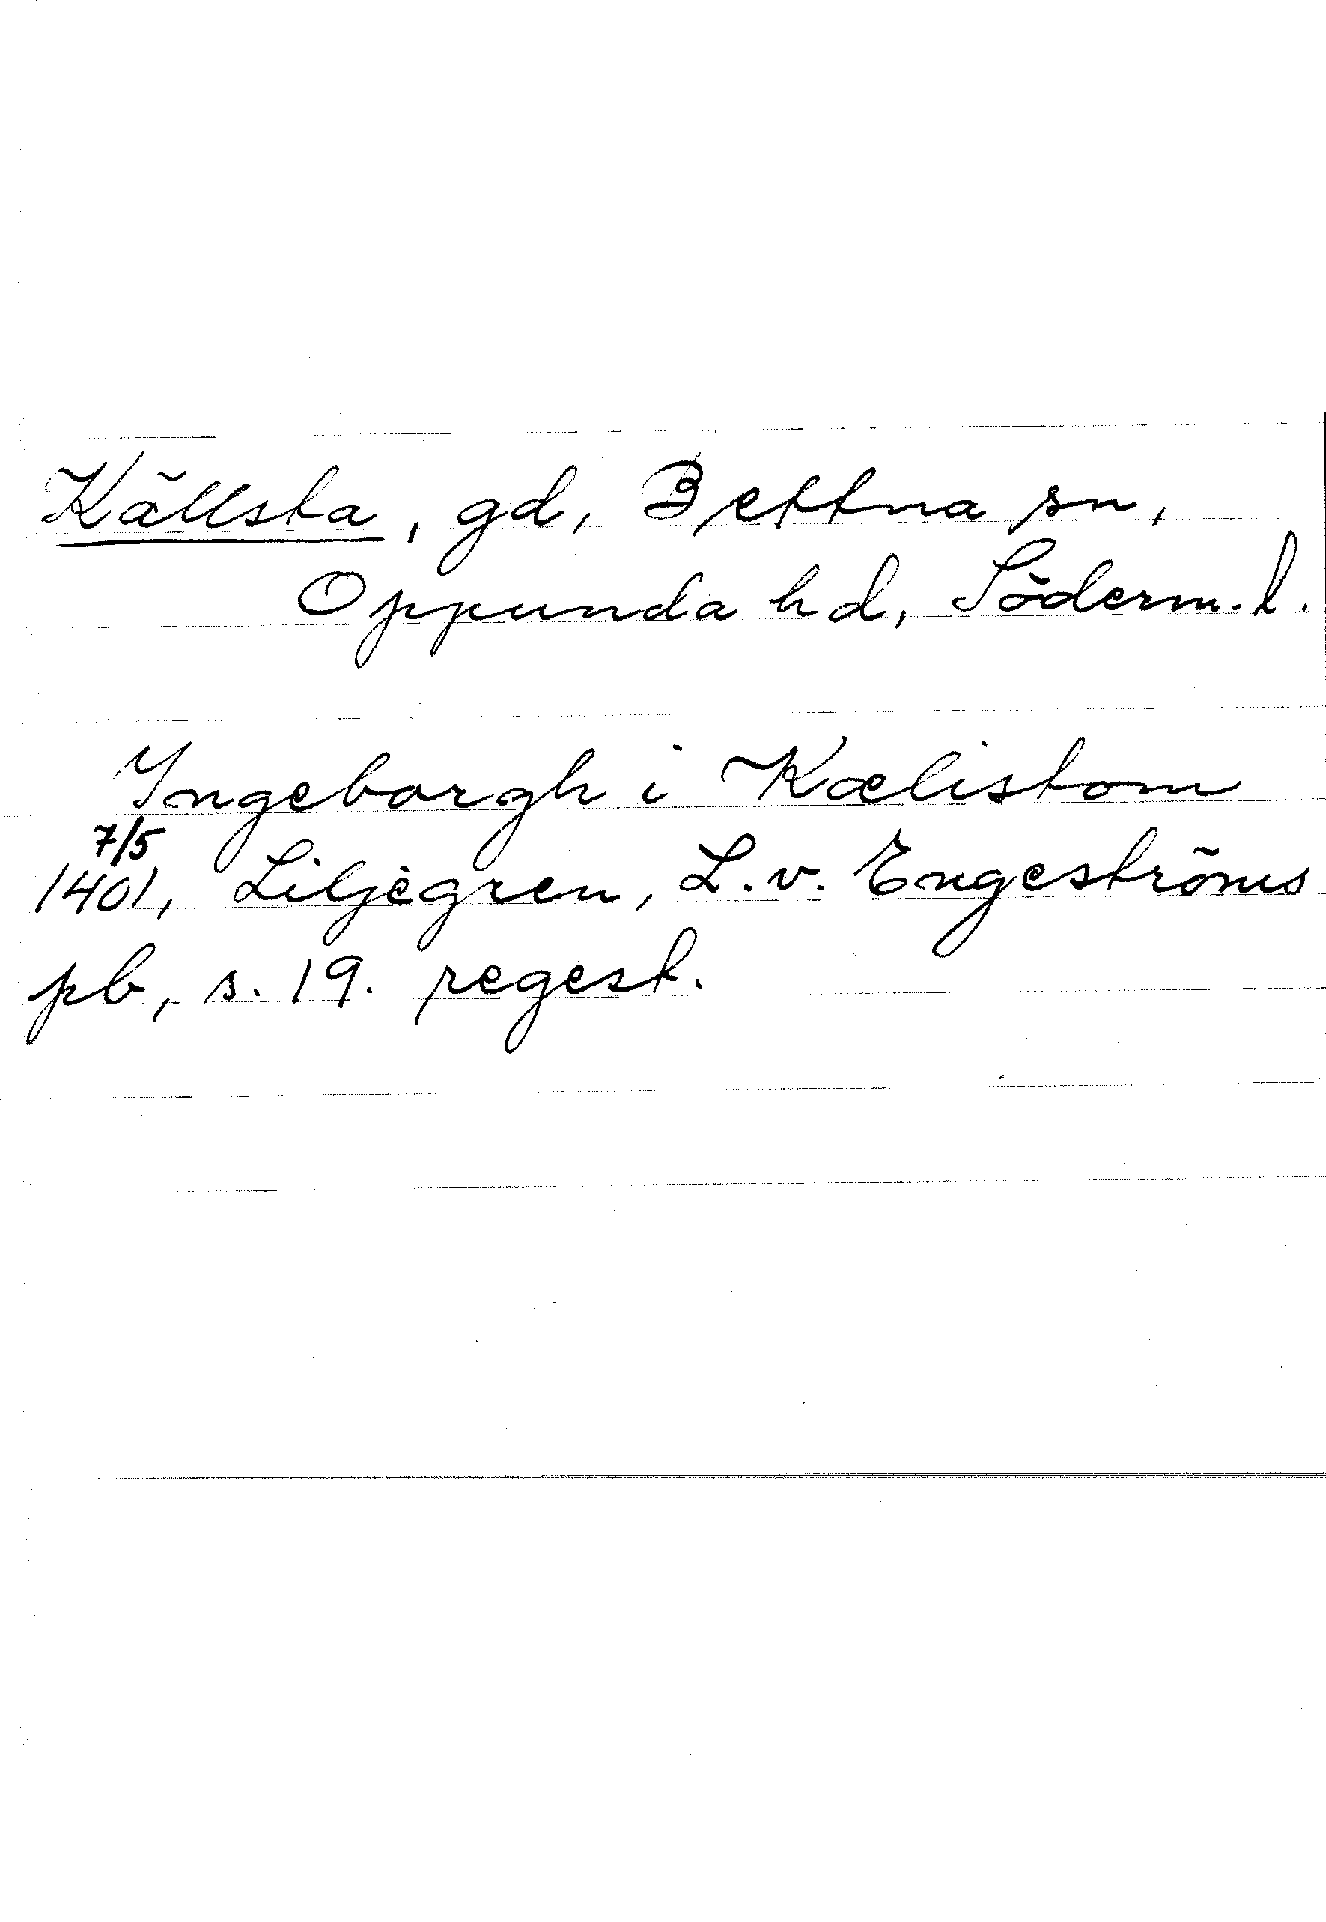 Källsta, gd, Bettna sn,
Oppunda hd, Söderm. l.
Ingeborgh i Kælistom
7/5
1401, Liljegren, L. v. Engeströms
pb, s. 19. regest.